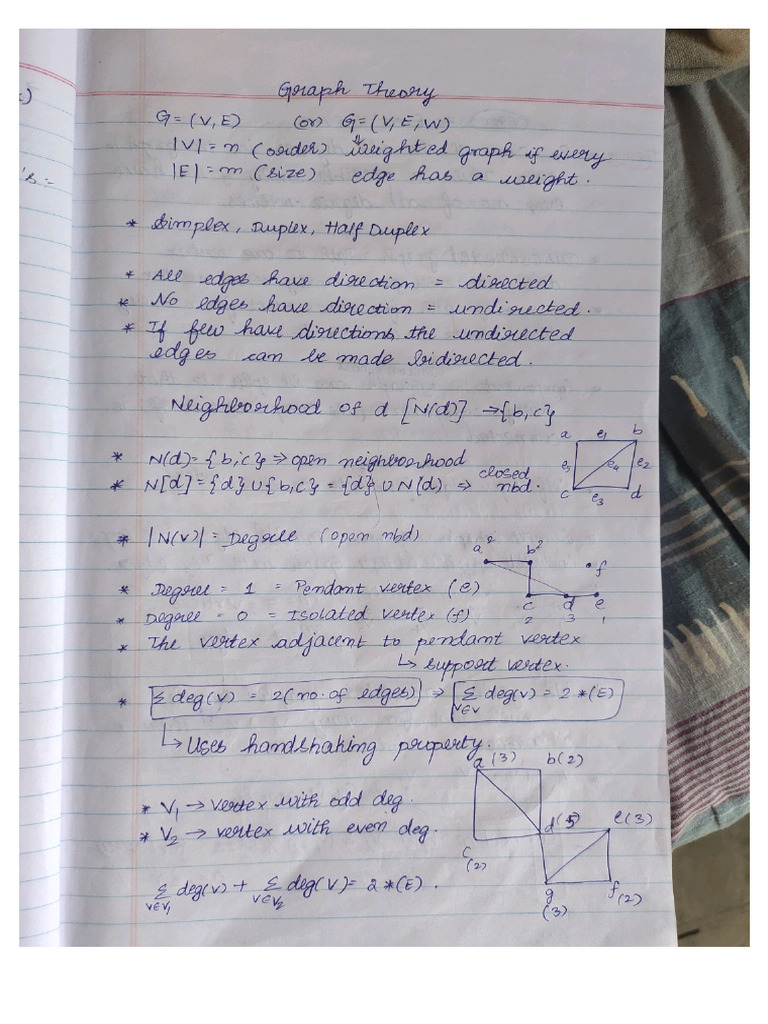 Graph Theory
G = (V, E) (or) G = (V, E, W)
|V| = n (order) weighted graph if every
|E| = m (size) edge has a weight.
* Simplex, Duplex, Half Duplex
* All edges have direction = directed
* No edges have direction = undirected.
* If few have directions, the undirected
edges can be made bidirected.
Neighborhood of d [N(d)] → {b, c}
a e₁ b
* N(d) = {b, c} ⇒ open neighborhood
e₅ e₄ e₂
* N[d] = {d} ∪ {b, c} = {d} ∪ N(d) ⇒ closed nbd.
c e₃ d
* |N(v)| = Degree (open nbd)
a 2 b 2
f
* Degree = 1 = Pendant vertex (e)
c d e
* Degree = 0 = Isolated vertex (f)
2 3 1
* The vertex adjacent to pendant vertex
↳ support vertex.
* Σ deg(v) = 2(no. of edges) ⇒ Σ deg(v) = 2 *(E)
v∈V
↳ Uses handshaking property.
a (3) b (2)
* V₁ → vertex with odd deg.
* V₂ → vertex with even deg.
d (5) e (3)
c (2)
Σ deg(v) + Σ deg(v) = 2 *(E).
v∈V₁ v∈V₂
g (3) f (2)